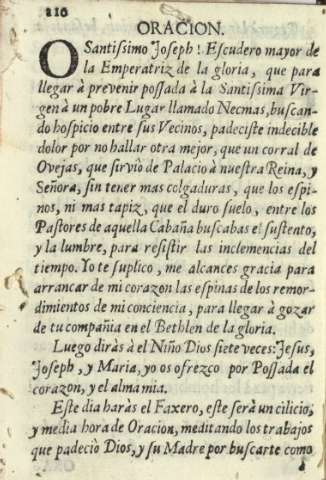 216
ORACION.
O Santiſsimo Joseph! Eſcudero mayor de
la Emperatriz de la gloria, que para
llegar à prevenir poſſada à la Santiſsima Vir-
gen à un pobre Lugar llamado Necmas, buſcan-
do hoſpicio entre ſus Vecinos, padeciſte indecible
dolor por no hallar otra mejor, que un corral de
Ovejas, que ſirviò de Palacio à nueſtra Reina, y
Señora, ſin tener mas colgaduras, que los eſpi-
nos, ni mas tapiz, que el duro ſuelo, entre los
Paſtores de aquella Cabaña buſcabas el ſuſtento,
y la lumbre, para reſiſtir las inclemencias del
tiempo. Yo te ſuplico, me alcances gracia para
arrancar de mi corazon las eſpinas de los remor-
dimientos de mi conciencia, para llegar à gozar
de tu compañia en el Bethlen de la gloria.
Luego diràs à el Niño Dios ſiete veces: Jeſus,
Joſeph, y Maria, yo os ofrezco por Poſſada el
corazon, y el alma mia.
Eſte dia haràs el Faxero, eſte ſerà un cilicio,
y media hora de Oracion, meditando los trabajos
que padeciò Dios, y ſu Madre por buſcarte como
à